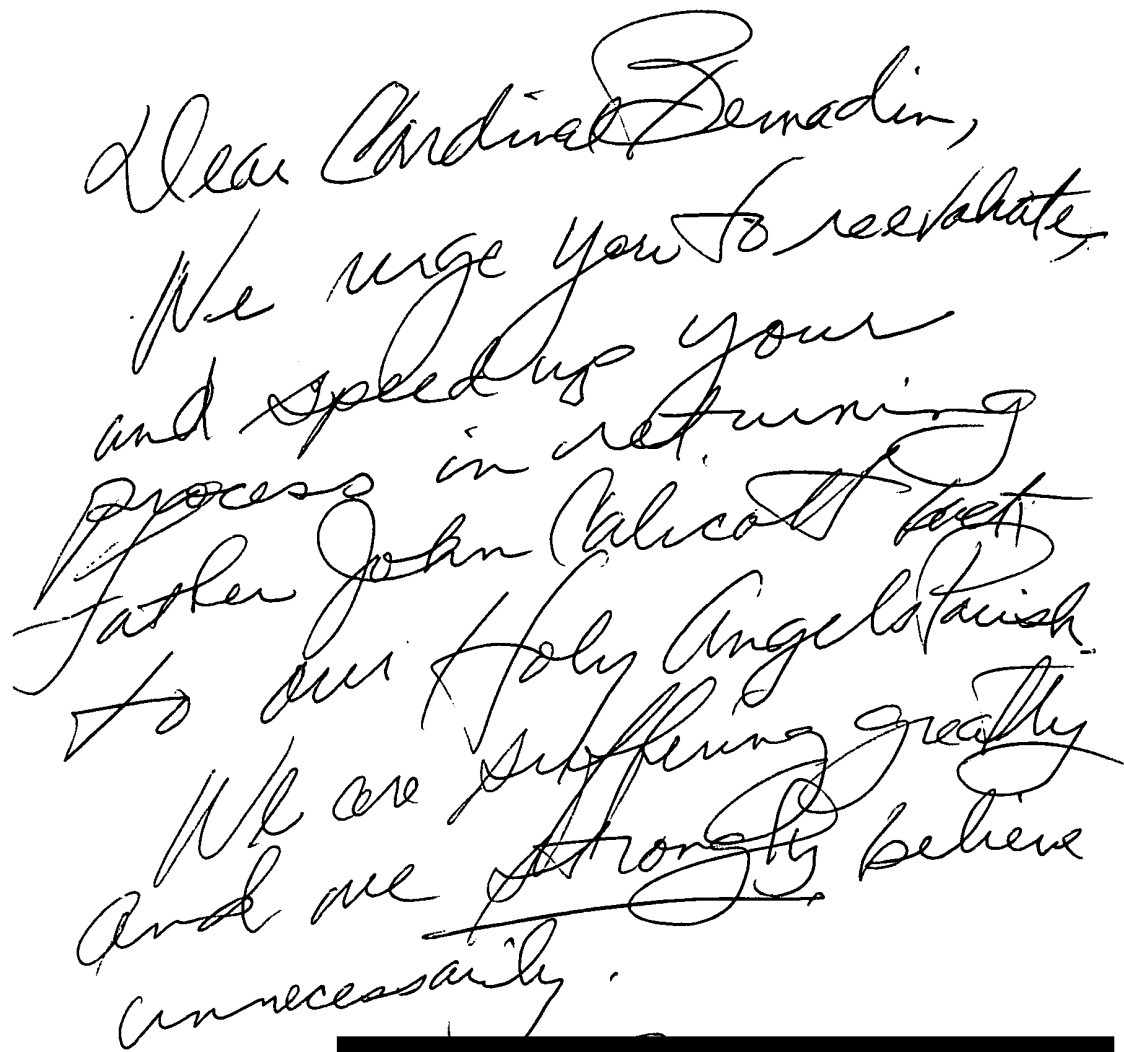 Dear Cardinal Bernadin,
We urge you to reevaluate,
and speed up your
process in returning
Father John Calicott back
to our Holy Angels Parish.
We are suffering greatly
and we strongly believe
unnecessarily.